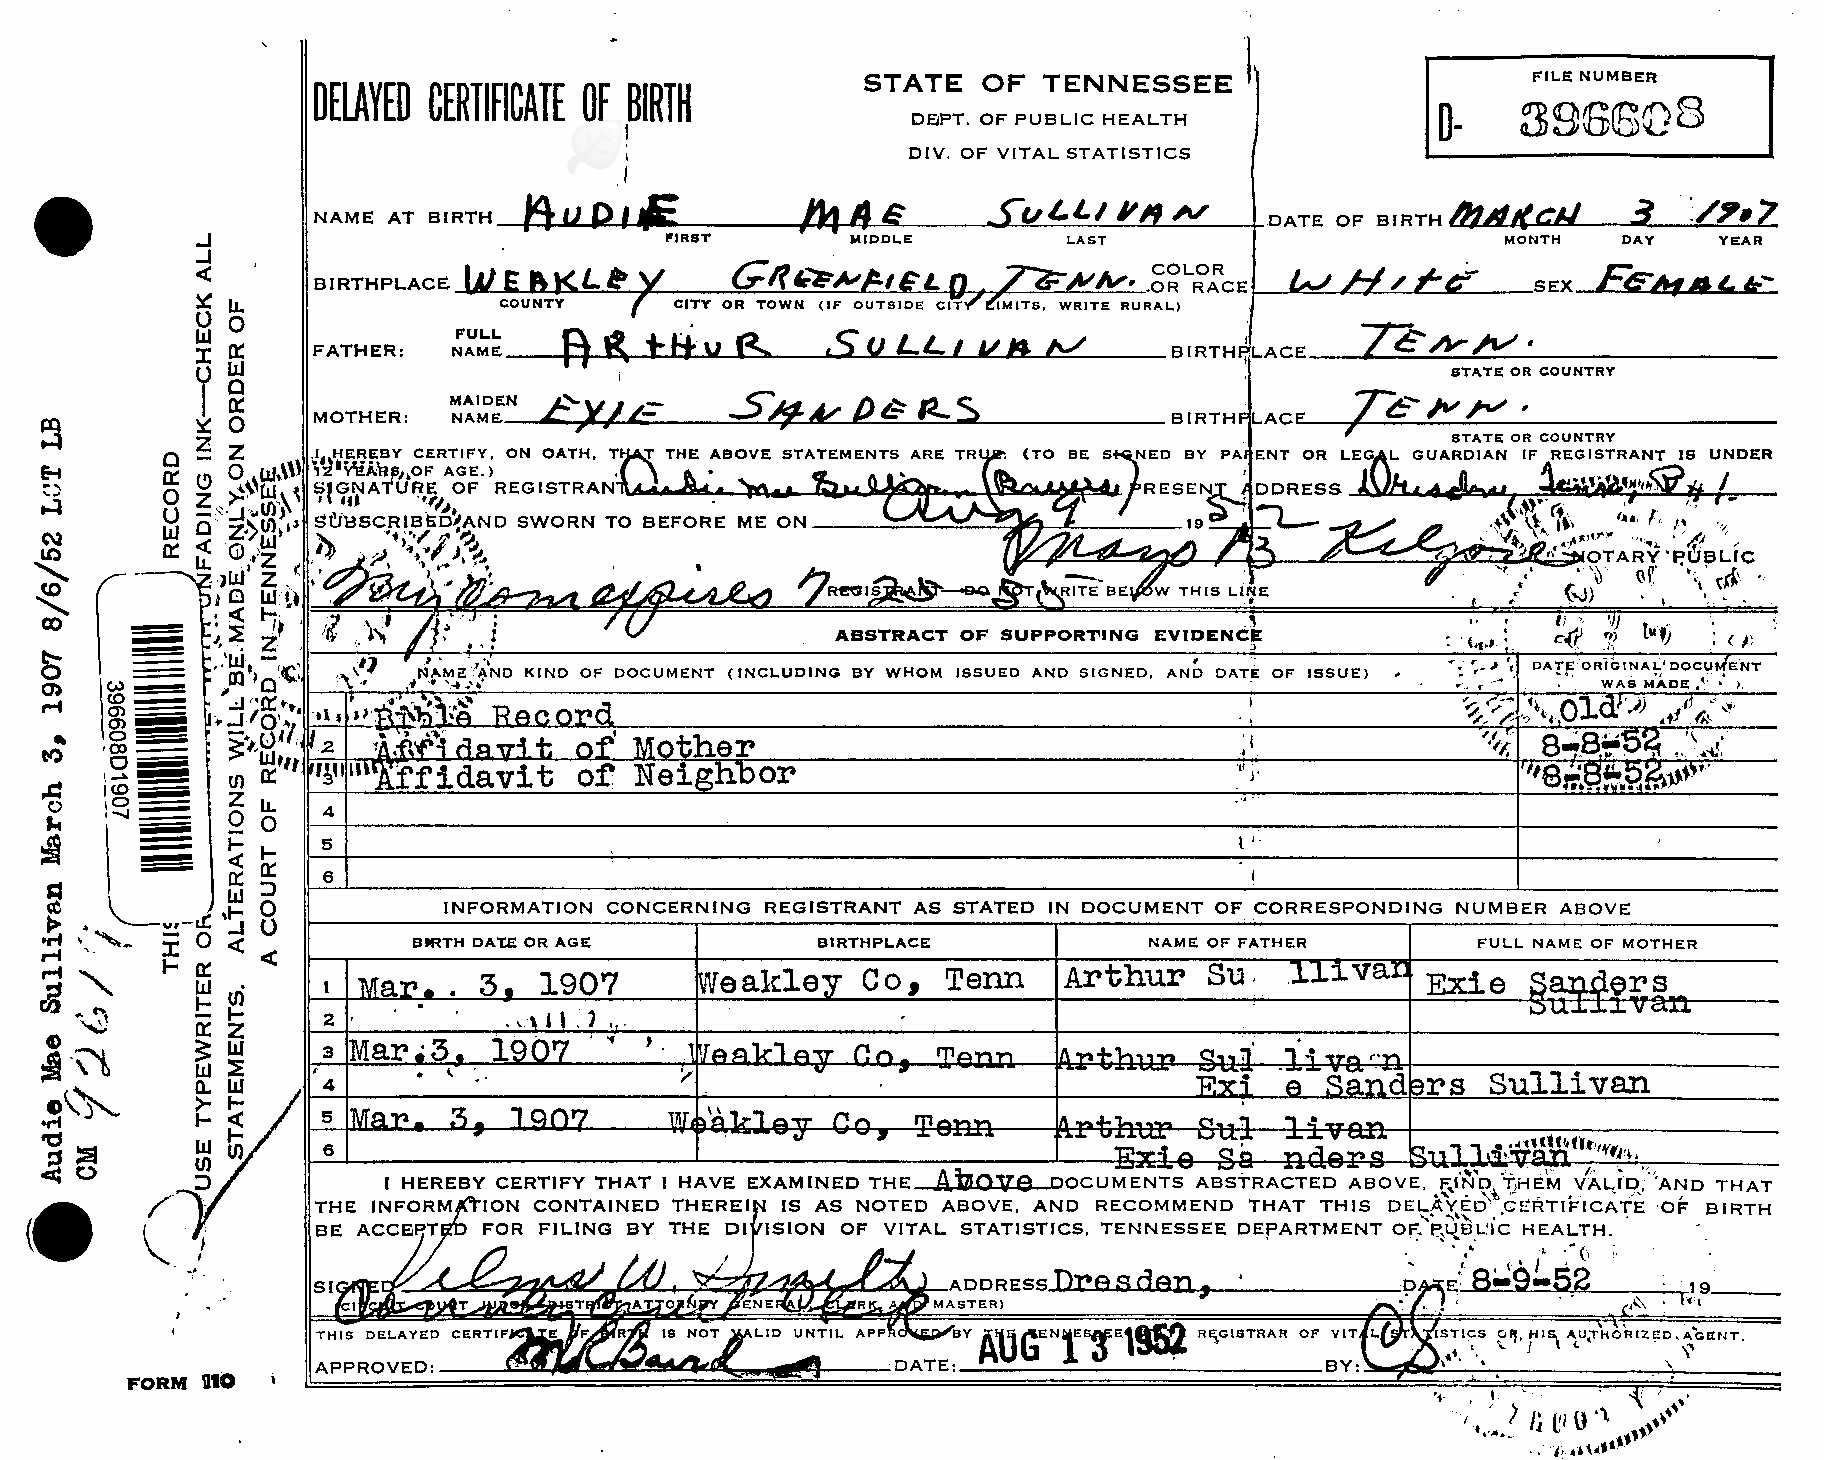 DELAYED CERTIFICATE OF BIRTH
STATE OF TENNESSEE
DEPT. OF PUBLIC HEALTH
DIV. OF VITAL STATISTICS
FILE NUMBER
D- 396608
NAME AT BIRTH AUDIE MAE SULLIVAN DATE OF BIRTH MARCH 3 1907
FIRST MIDDLE LAST MONTH DAY YEAR
BIRTHPLACE WEAKLEY GREENFIELD, TENN. COLOR OR RACE WHITE SEX FEMALE
COUNTY CITY OR TOWN (IF OUTSIDE CITY LIMITS, WRITE RURAL)
FATHER: FULL NAME ARTHUR SULLIVAN BIRTHPLACE TENN.
STATE OR COUNTRY
MOTHER: MAIDEN NAME EXIE SANDERS BIRTHPLACE TENN.
STATE OR COUNTRY
I HEREBY CERTIFY, ON OATH, THAT THE ABOVE STATEMENTS ARE TRUE. (TO BE SIGNED BY PARENT OR LEGAL GUARDIAN IF REGISTRANT IS UNDER
12 YEARS OF AGE.)
SIGNATURE OF REGISTRANT Audie Mae Sullivan PRESENT ADDRESS Dresden, Tenn, R #1.
SUBSCRIBED AND SWORN TO BEFORE ME ON Aug 9 1952
Mayo B Kilgore NOTARY PUBLIC
My Com expires 7-25-55
REGISTRANT DO NOT WRITE BELOW THIS LINE
ABSTRACT OF SUPPORTING EVIDENCE
NAME AND KIND OF DOCUMENT (INCLUDING BY WHOM ISSUED AND SIGNED, AND DATE OF ISSUE) DATE ORIGINAL DOCUMENT WAS MADE
1 Bible Record Old
2 Affidavit of Mother 8-8-52
3 Affidavit of Neighbor 8-8-52
4
5
6
INFORMATION CONCERNING REGISTRANT AS STATED IN DOCUMENT OF CORRESPONDING NUMBER ABOVE
BIRTH DATE OR AGE BIRTHPLACE NAME OF FATHER FULL NAME OF MOTHER
1 Mar. . 3, 1907 Weakley Co, Tenn Arthur Su. llivan Exie Sanders
Sullivan
2
3 Mar.3, 1907 Weakley Co, Tenn Arthur Sul livan
4 Exi e Sanders Sullivan
5 Mar. 3, 1907 Weakley Co, Tenn Arthur Sul livan
6 Exie Sa nders Sullivan
I HEREBY CERTIFY THAT I HAVE EXAMINED THE Above DOCUMENTS ABSTRACTED ABOVE, FIND THEM VALID, AND THAT
THE INFORMATION CONTAINED THEREIN IS AS NOTED ABOVE, AND RECOMMEND THAT THIS DELAYED CERTIFICATE OF BIRTH
BE ACCEPTED FOR FILING BY THE DIVISION OF VITAL STATISTICS, TENNESSEE DEPARTMENT OF PUBLIC HEALTH.
SIGNED ADDRESS Dresden, DATE 8-9-52 19
County Court Clerk
(CIRCUIT COURT JUDGE, DISTRICT ATTORNEY GENERAL, CLERK AND MASTER)
THIS DELAYED CERTIFICATE OF BIRTH IS NOT VALID UNTIL APPROVED BY THE TENNESSEE REGISTRAR OF VITAL STATISTICS OR HIS AUTHORIZED AGENT.
APPROVED: DATE: AUG 13 1952 BY: CS
FORM 110
THIS RECORD
USE TYPEWRITER OR UNFADING INK—CHECK ALL
STATEMENTS. ALTERATIONS WILL BE MADE ONLY ON ORDER OF
A COURT OF RECORD IN TENNESSEE
396608D1907
Audie Mae Sullivan March 3, 1907 8/6/52 LCT LB
CM